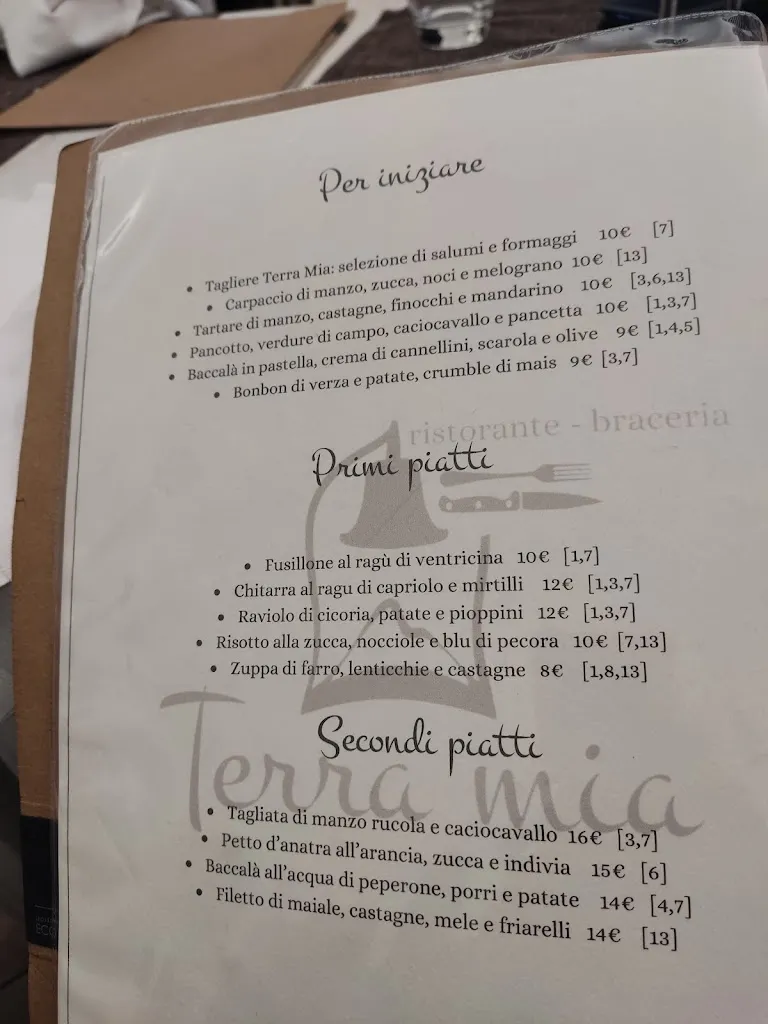 Per iniziare
• Tagliere Terra Mia: selezione di salumi e formaggi 10€ [7]
• Carpaccio di manzo, zucca, noci e melograno 10€ [13]
• Tartare di manzo, castagne, finocchi e mandarino 10€ [3,6,13]
• Pancotto, verdure di campo, caciocavallo e pancetta 10€ [1,3,7]
• Baccalà in pastella, crema di cannellini, scarola e olive 9€ [1,4,5]
• Bonbon di verza e patate, crumble di mais 9€ [3,7]
ristorante - braceria
Primi piatti
• Fusillone al ragù di ventricina 10€ [1,7]
• Chitarra al ragu di capriolo e mirtilli 12€ [1,3,7]
• Raviolo di cicoria, patate e pioppini 12€ [1,3,7]
• Risotto alla zucca, nocciole e blu di pecora 10€ [7,13]
• Zuppa di farro, lenticchie e castagne 8€ [1,8,13]
Secondi piatti
Terra mia
• Tagliata di manzo rucola e caciocavallo 16€ [3,7]
• Petto d'anatra all'arancia, zucca e indivia 15€ [6]
• Baccalà all'acqua di peperone, porri e patate 14€ [4,7]
• Filetto di maiale, castagne, mele e friarelli 14€ [13]